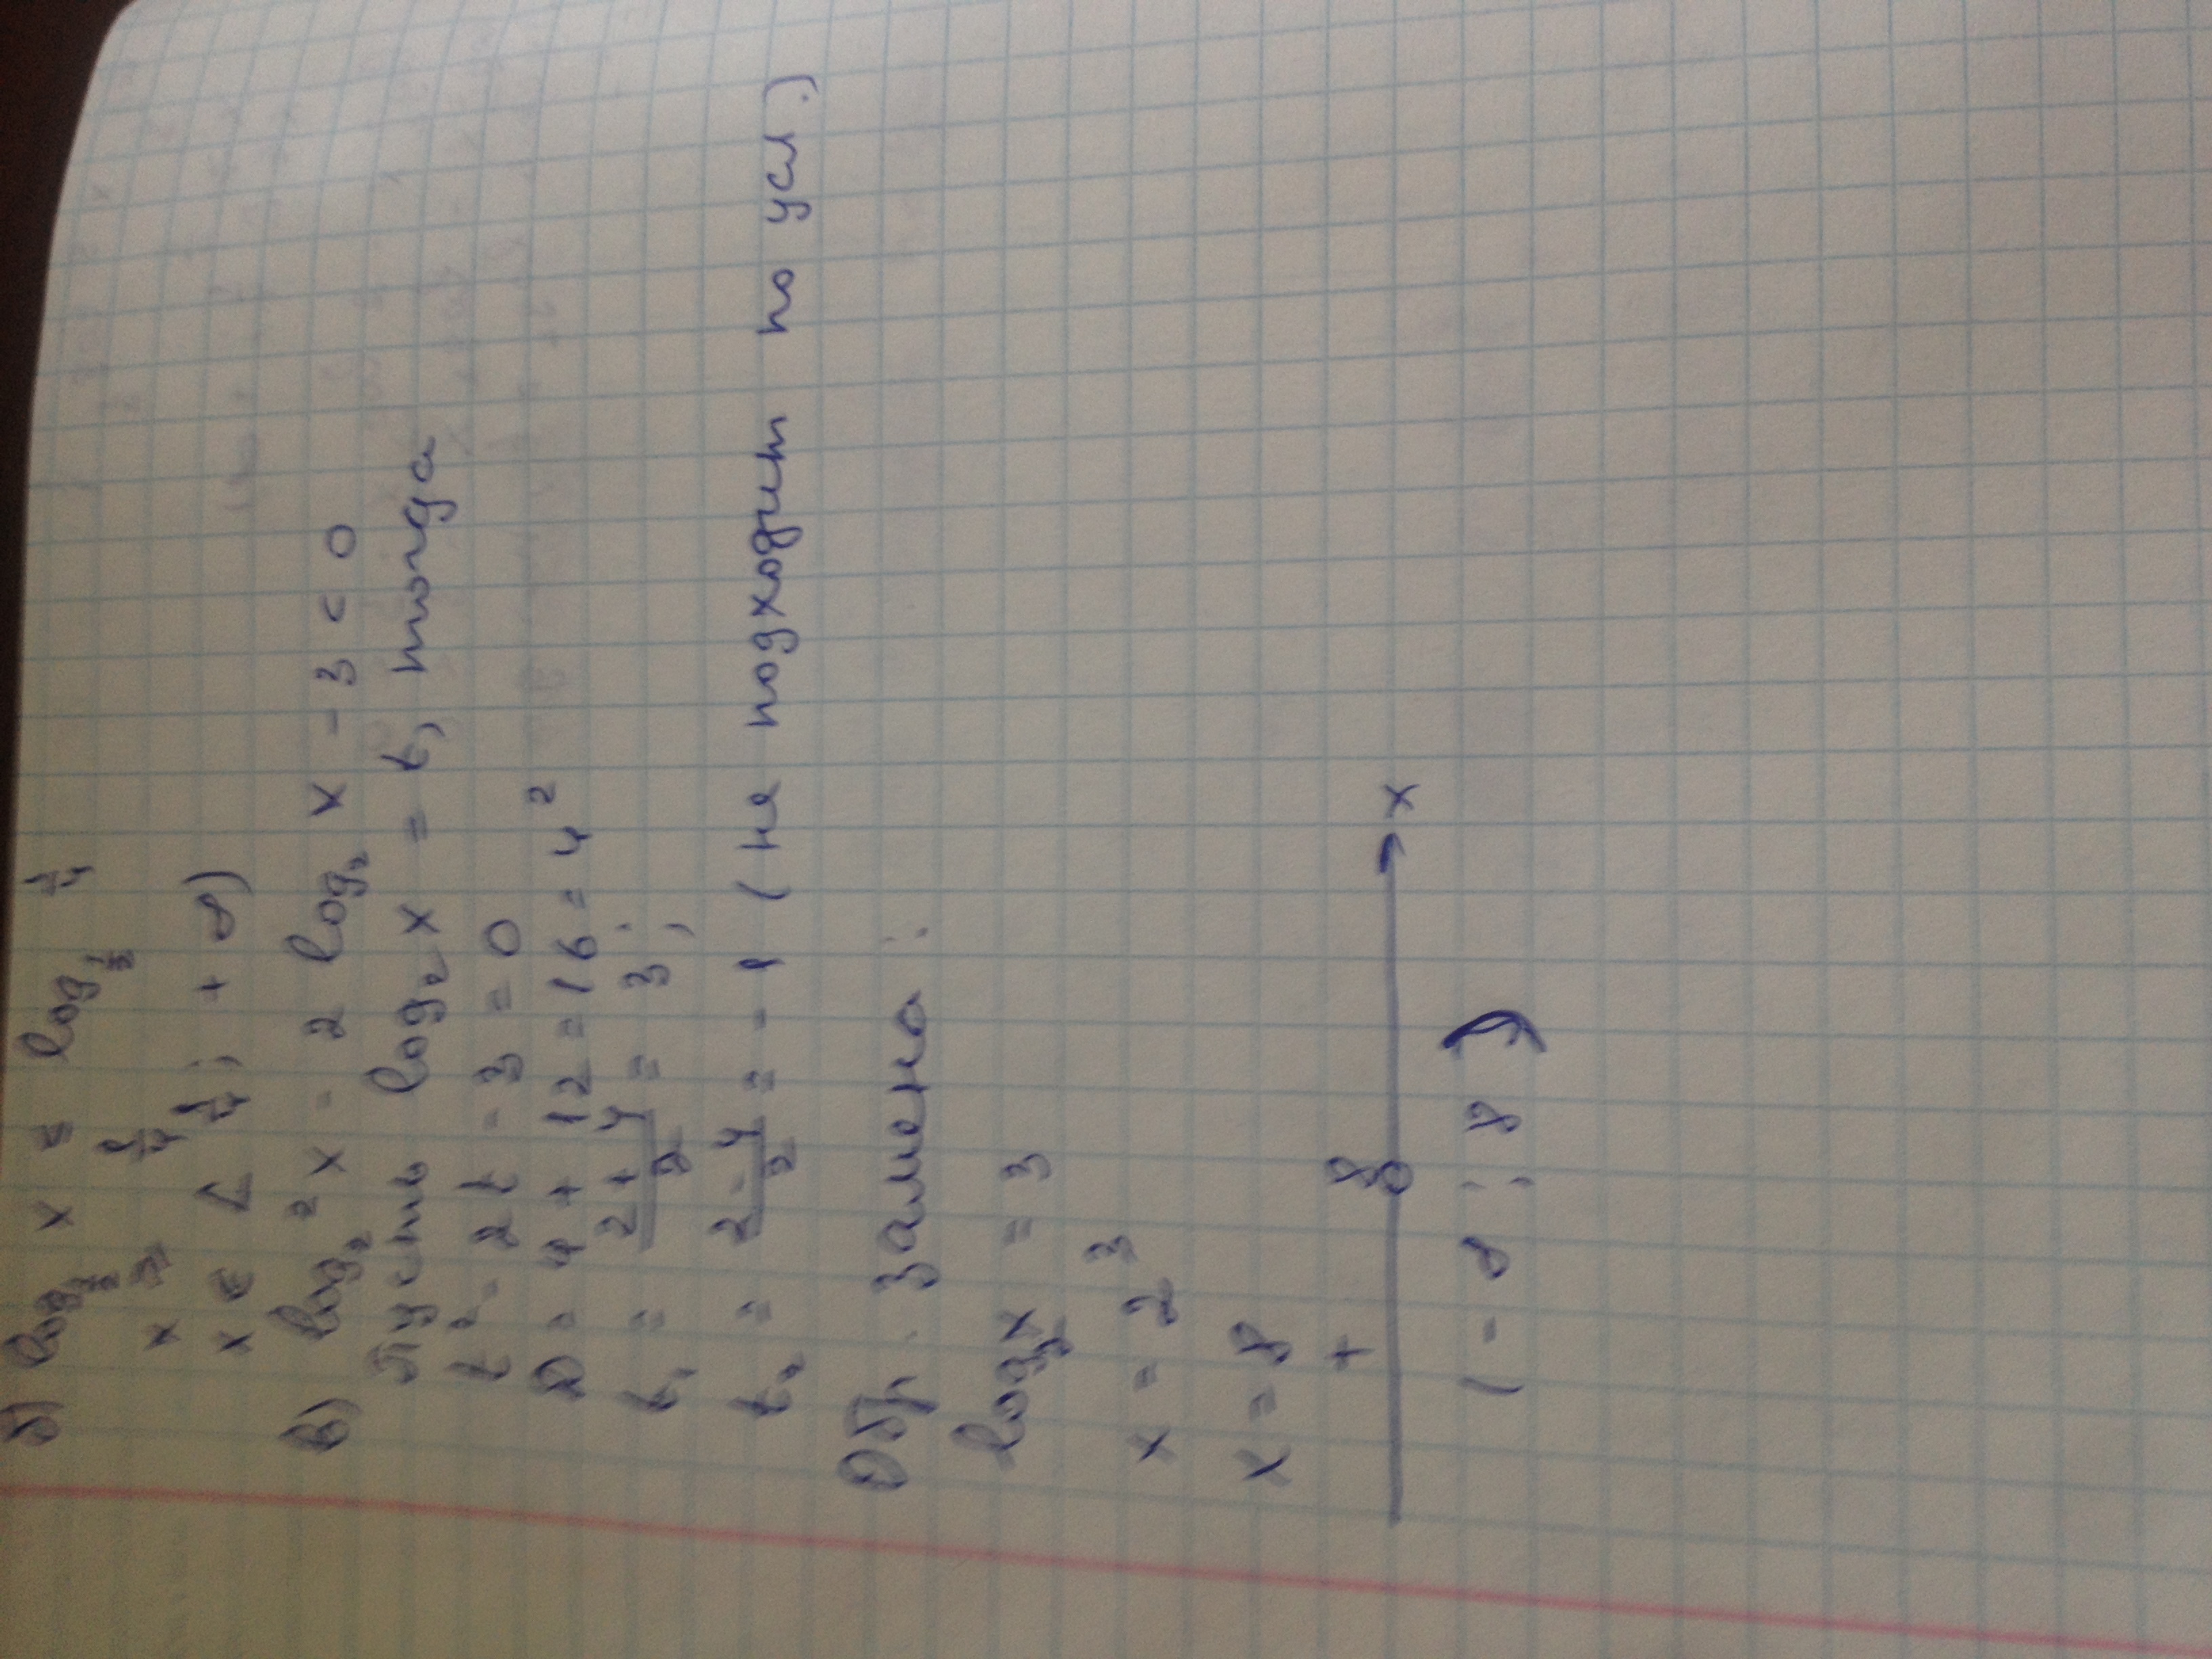 б) log_{1/2} x ≤ log_{1/2} 1/4
x ≥ 1/4
x ∈ [1/4; +∞)
в) log₂²x - 2 log₂ x - 3 < 0
Пусть log₂ x = t, тогда
t² - 2t - 3 = 0
D = 4 + 12 = 16 = 4²
t₁ = (2+4)/2 = 3;
t₂ = (2-4)/2 = -1 (не подходит по усл.)
Обр. замена:
log₂x = 3
x = 2³
x = 8
+ 8 x
(-∞; 8)